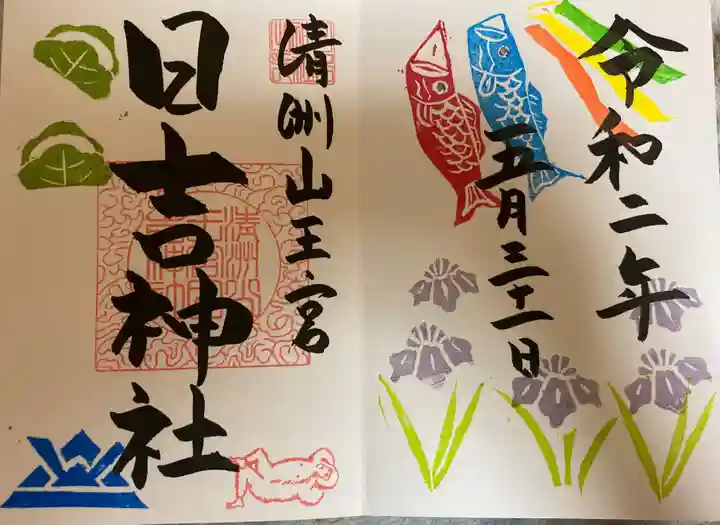 令和二年
五月三十一日
清洲山王宮
日吉神社